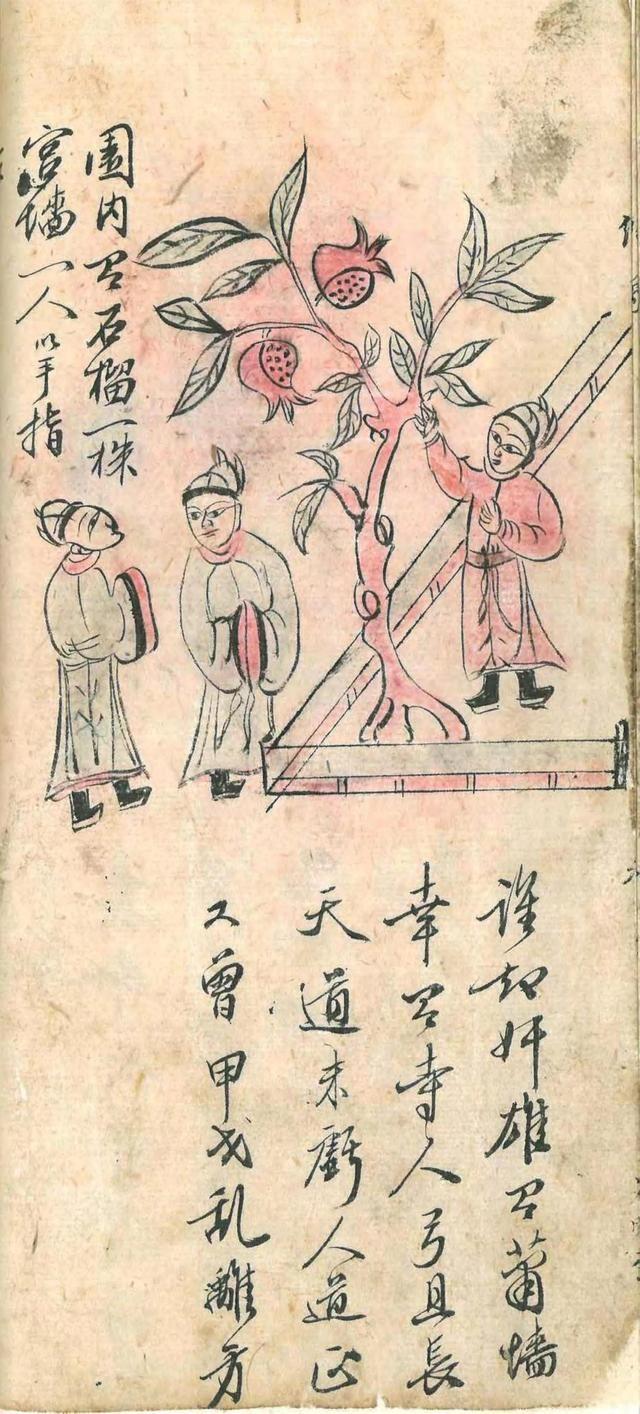 園内有石榴一株
宫墻一人以手指
誰知奸雄有蕭墻
幸有寺人弓且長
天道未虧人道正
不曾甲戈乱離方